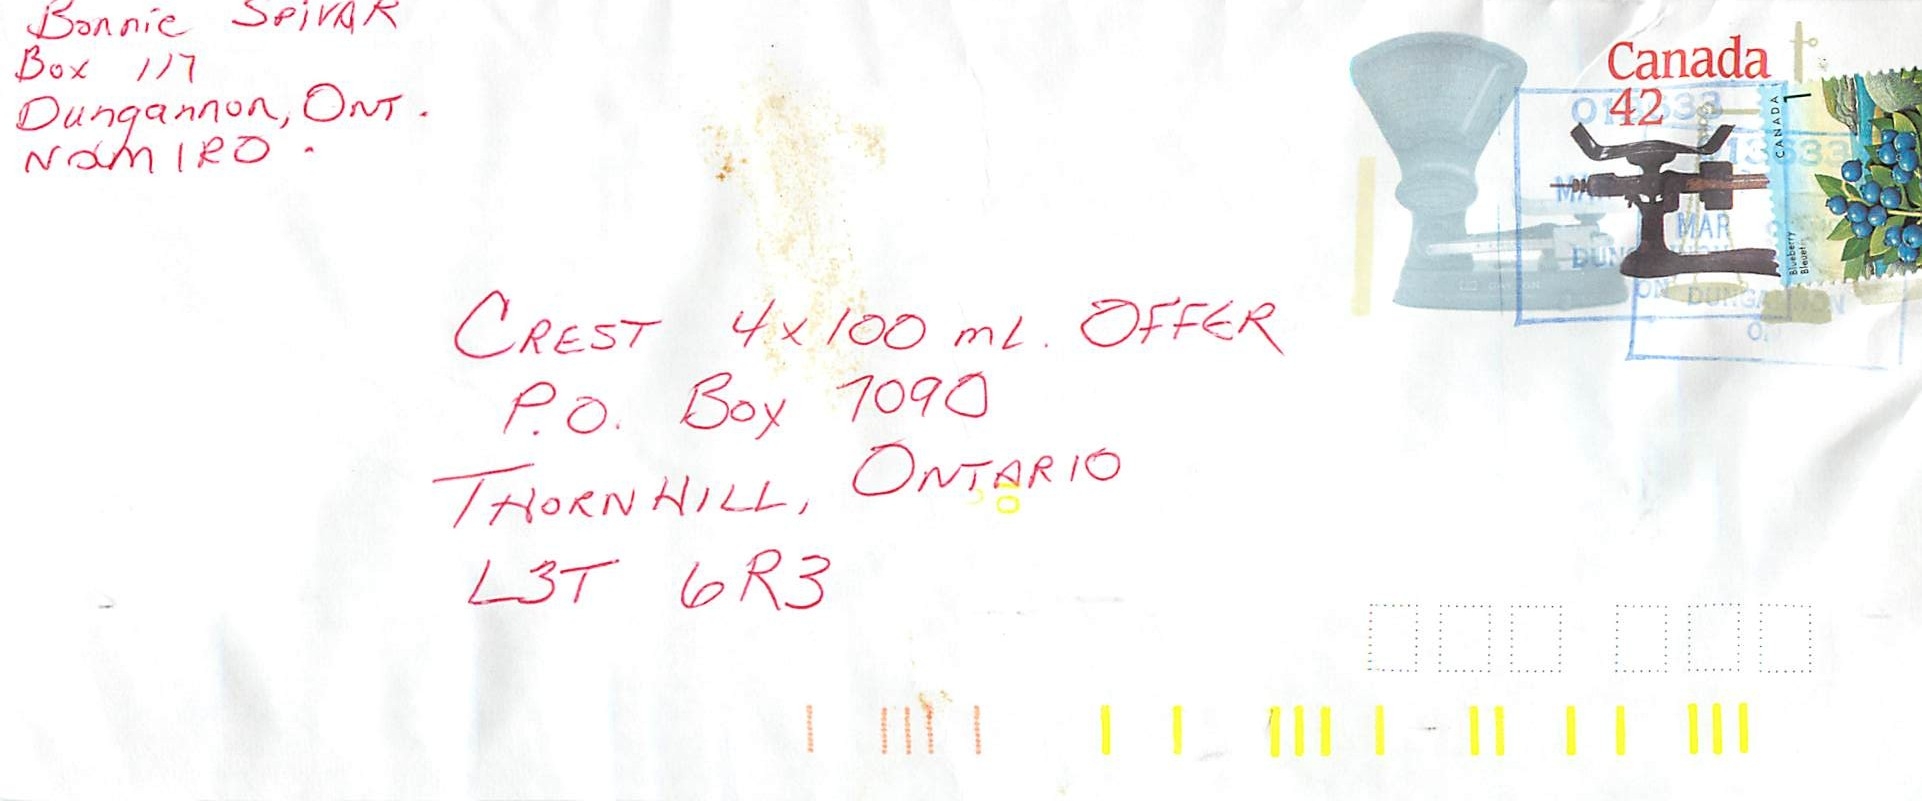 Bonnie Spivak
Box 117
Dungannon, ONT.
N0M 1R0.
Canada
42
CANADA 1
Blueberry
Bleuet
013633
013633
MAR
DUNGANNON
ON
DUNGANNON
ON
CREST 4x100 mL. OFFER
P.O. Box 7090
THORNHILL, ONTARIO
L3T 6R3